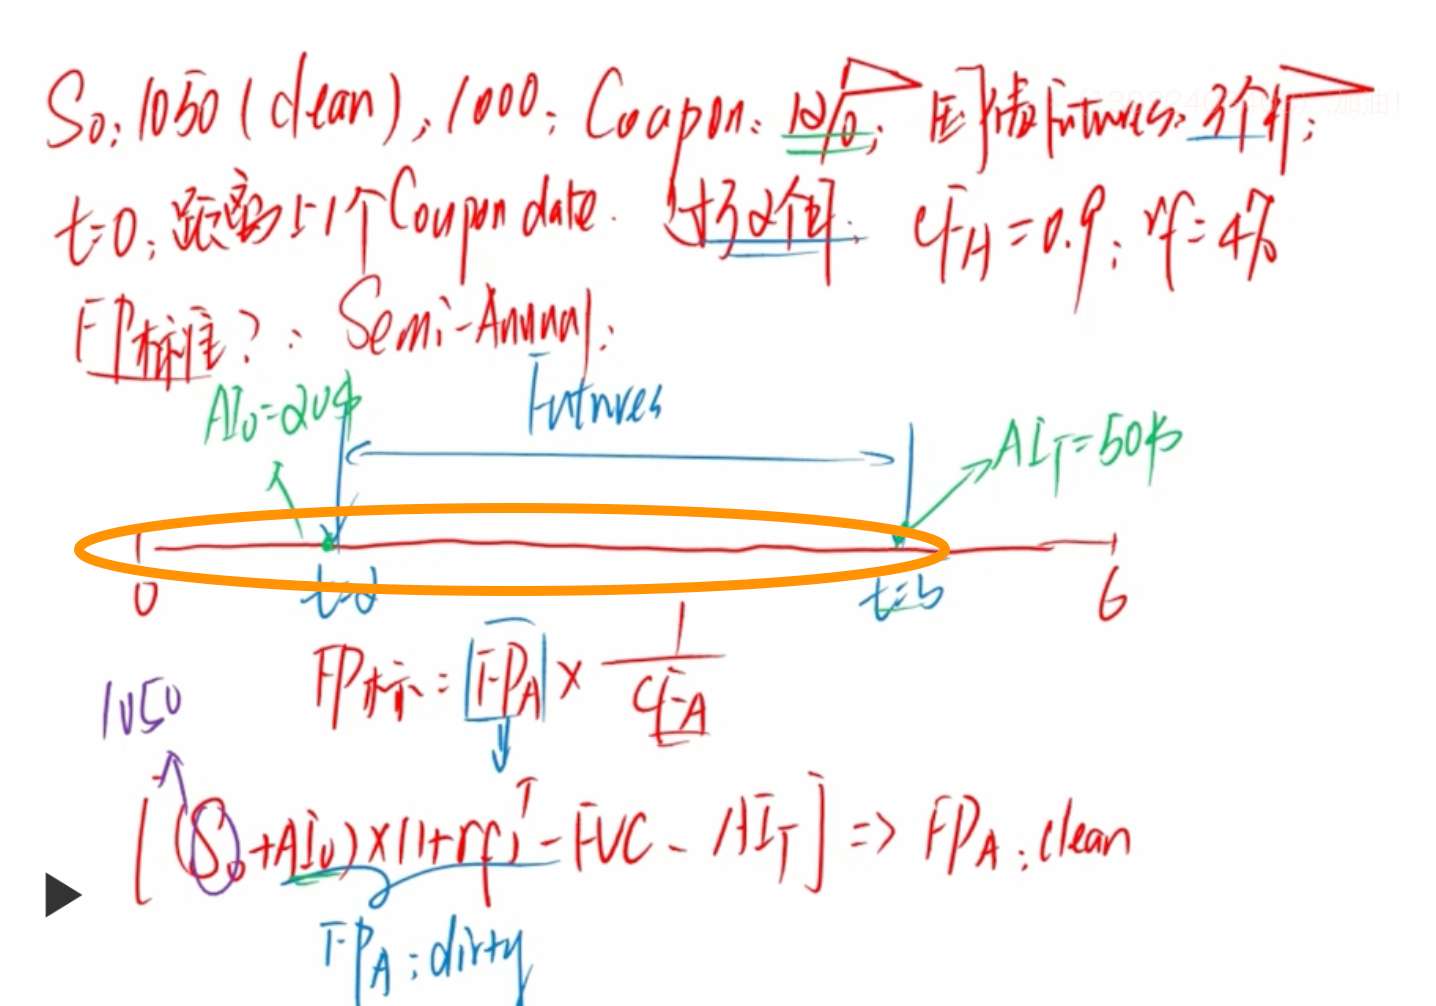 S₀: 1050 (clean), 1000; Coupon: 12%; 国债Futures: 3个月;
t=0, 距离上1个Coupon date. 过了2个月. CF_A=0.9; rf=4%
FP标准?: Semi-Annual.
AI₀=20$ Futures
AI_T=50$
0 t=2 t=5 6
FP标 = FP_A × 1/CF_A
1050
[(S₀+AI₀)×(1+rf)^T - FVC - AI_T] => FP_A: clean
FP_A: dirty